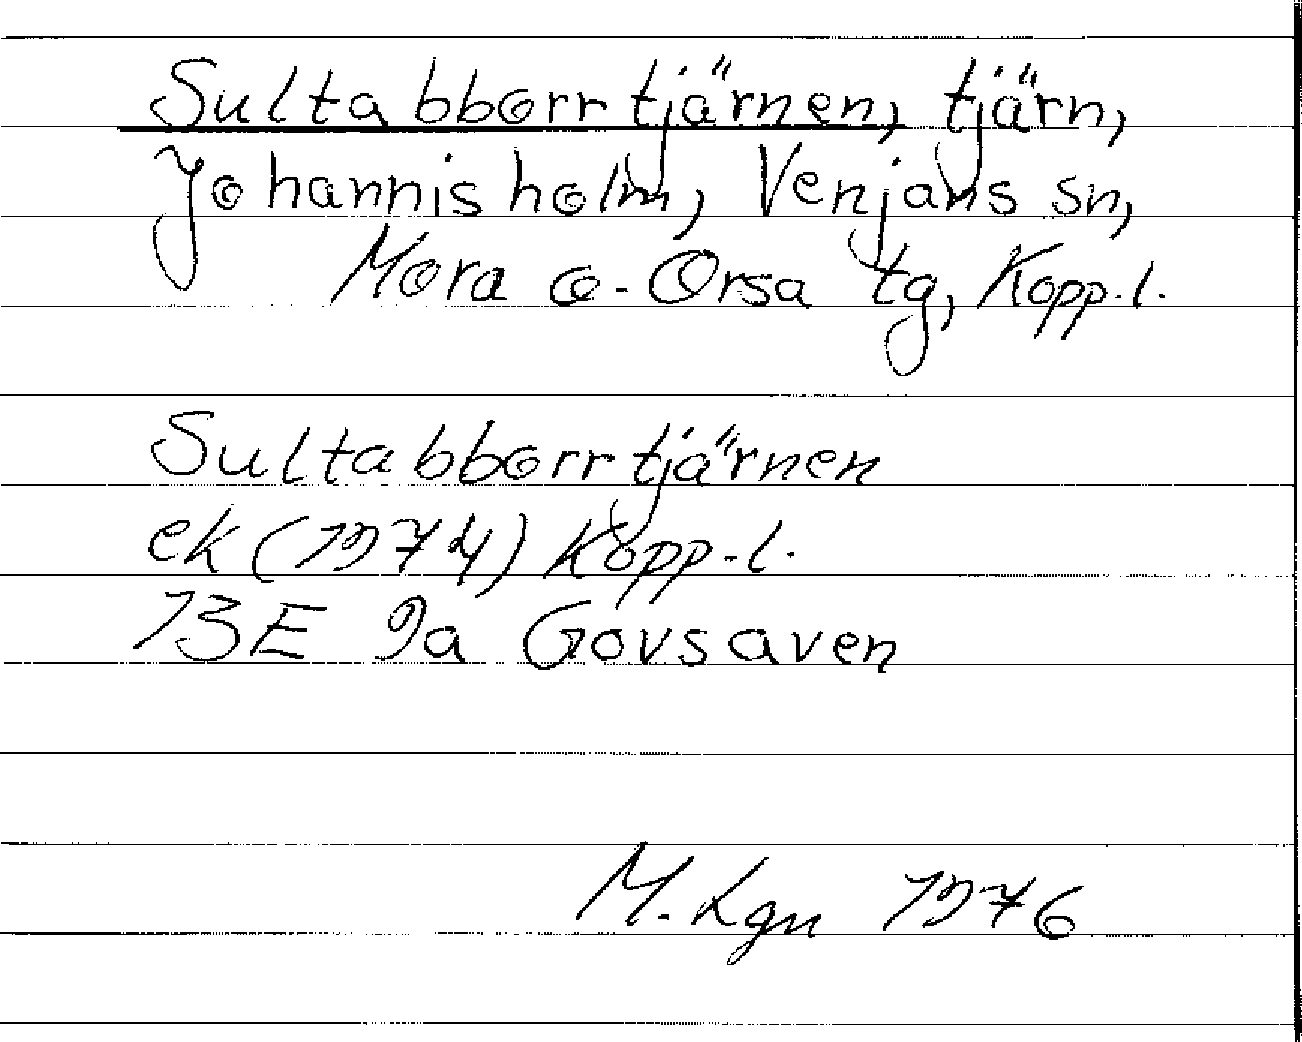 Sultabborrtjärnen, tjärn,
Johannisholm, Venjans sn,
Mora o. Orsa tg, Kopp. l.
Sultabborrtjärnen
ek (1974) Kopp. l.
13E 9a Govsaven
M. Lgn 1976